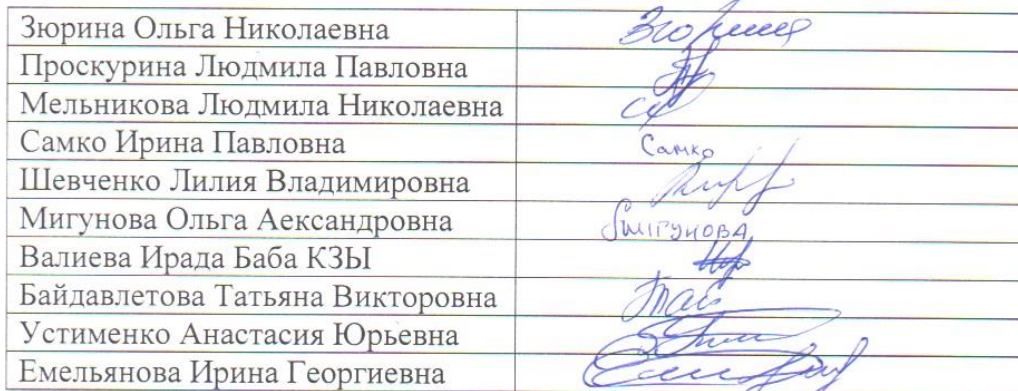 Зюрина Ольга Николаевна
Проскурина Людмила Павловна
Мельникова Людмила Николаевна
Самко Ирина Павловна Самко
Шевченко Лилия Владимировна
Мигунова Ольга Аександровна Мигунова
Валиева Ирада Баба КЗЫ
Байдавлетова Татьяна Викторовна
Устименко Анастасия Юрьевна
Емельянова Ирина Георгиевна